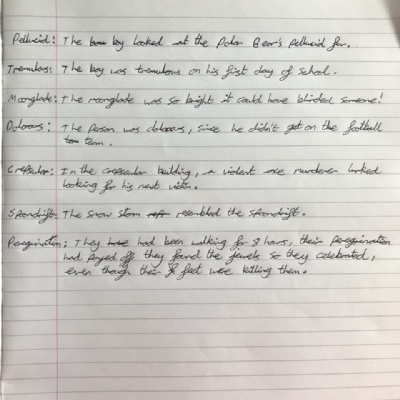 Pellucid: The boy looked at the Polar Bear's pellucid fur.
Tremulous: The boy was tremulous on his first day of school.
Moonglade: The moonglade was so bright it could have blinded someone!
Dolorous: The person was dolorous, since he didn't get on the football
team.
Crepsular: In the crepsular building, a violent axe murderer lurked
looking for his next victim.
Spondrift: The snow storm resembled the spondrift.
Peregrination: They had been walking for 8 hours, their peregrination
had payed off they found the jewels so they celebrated,
even though their feet were killing them.